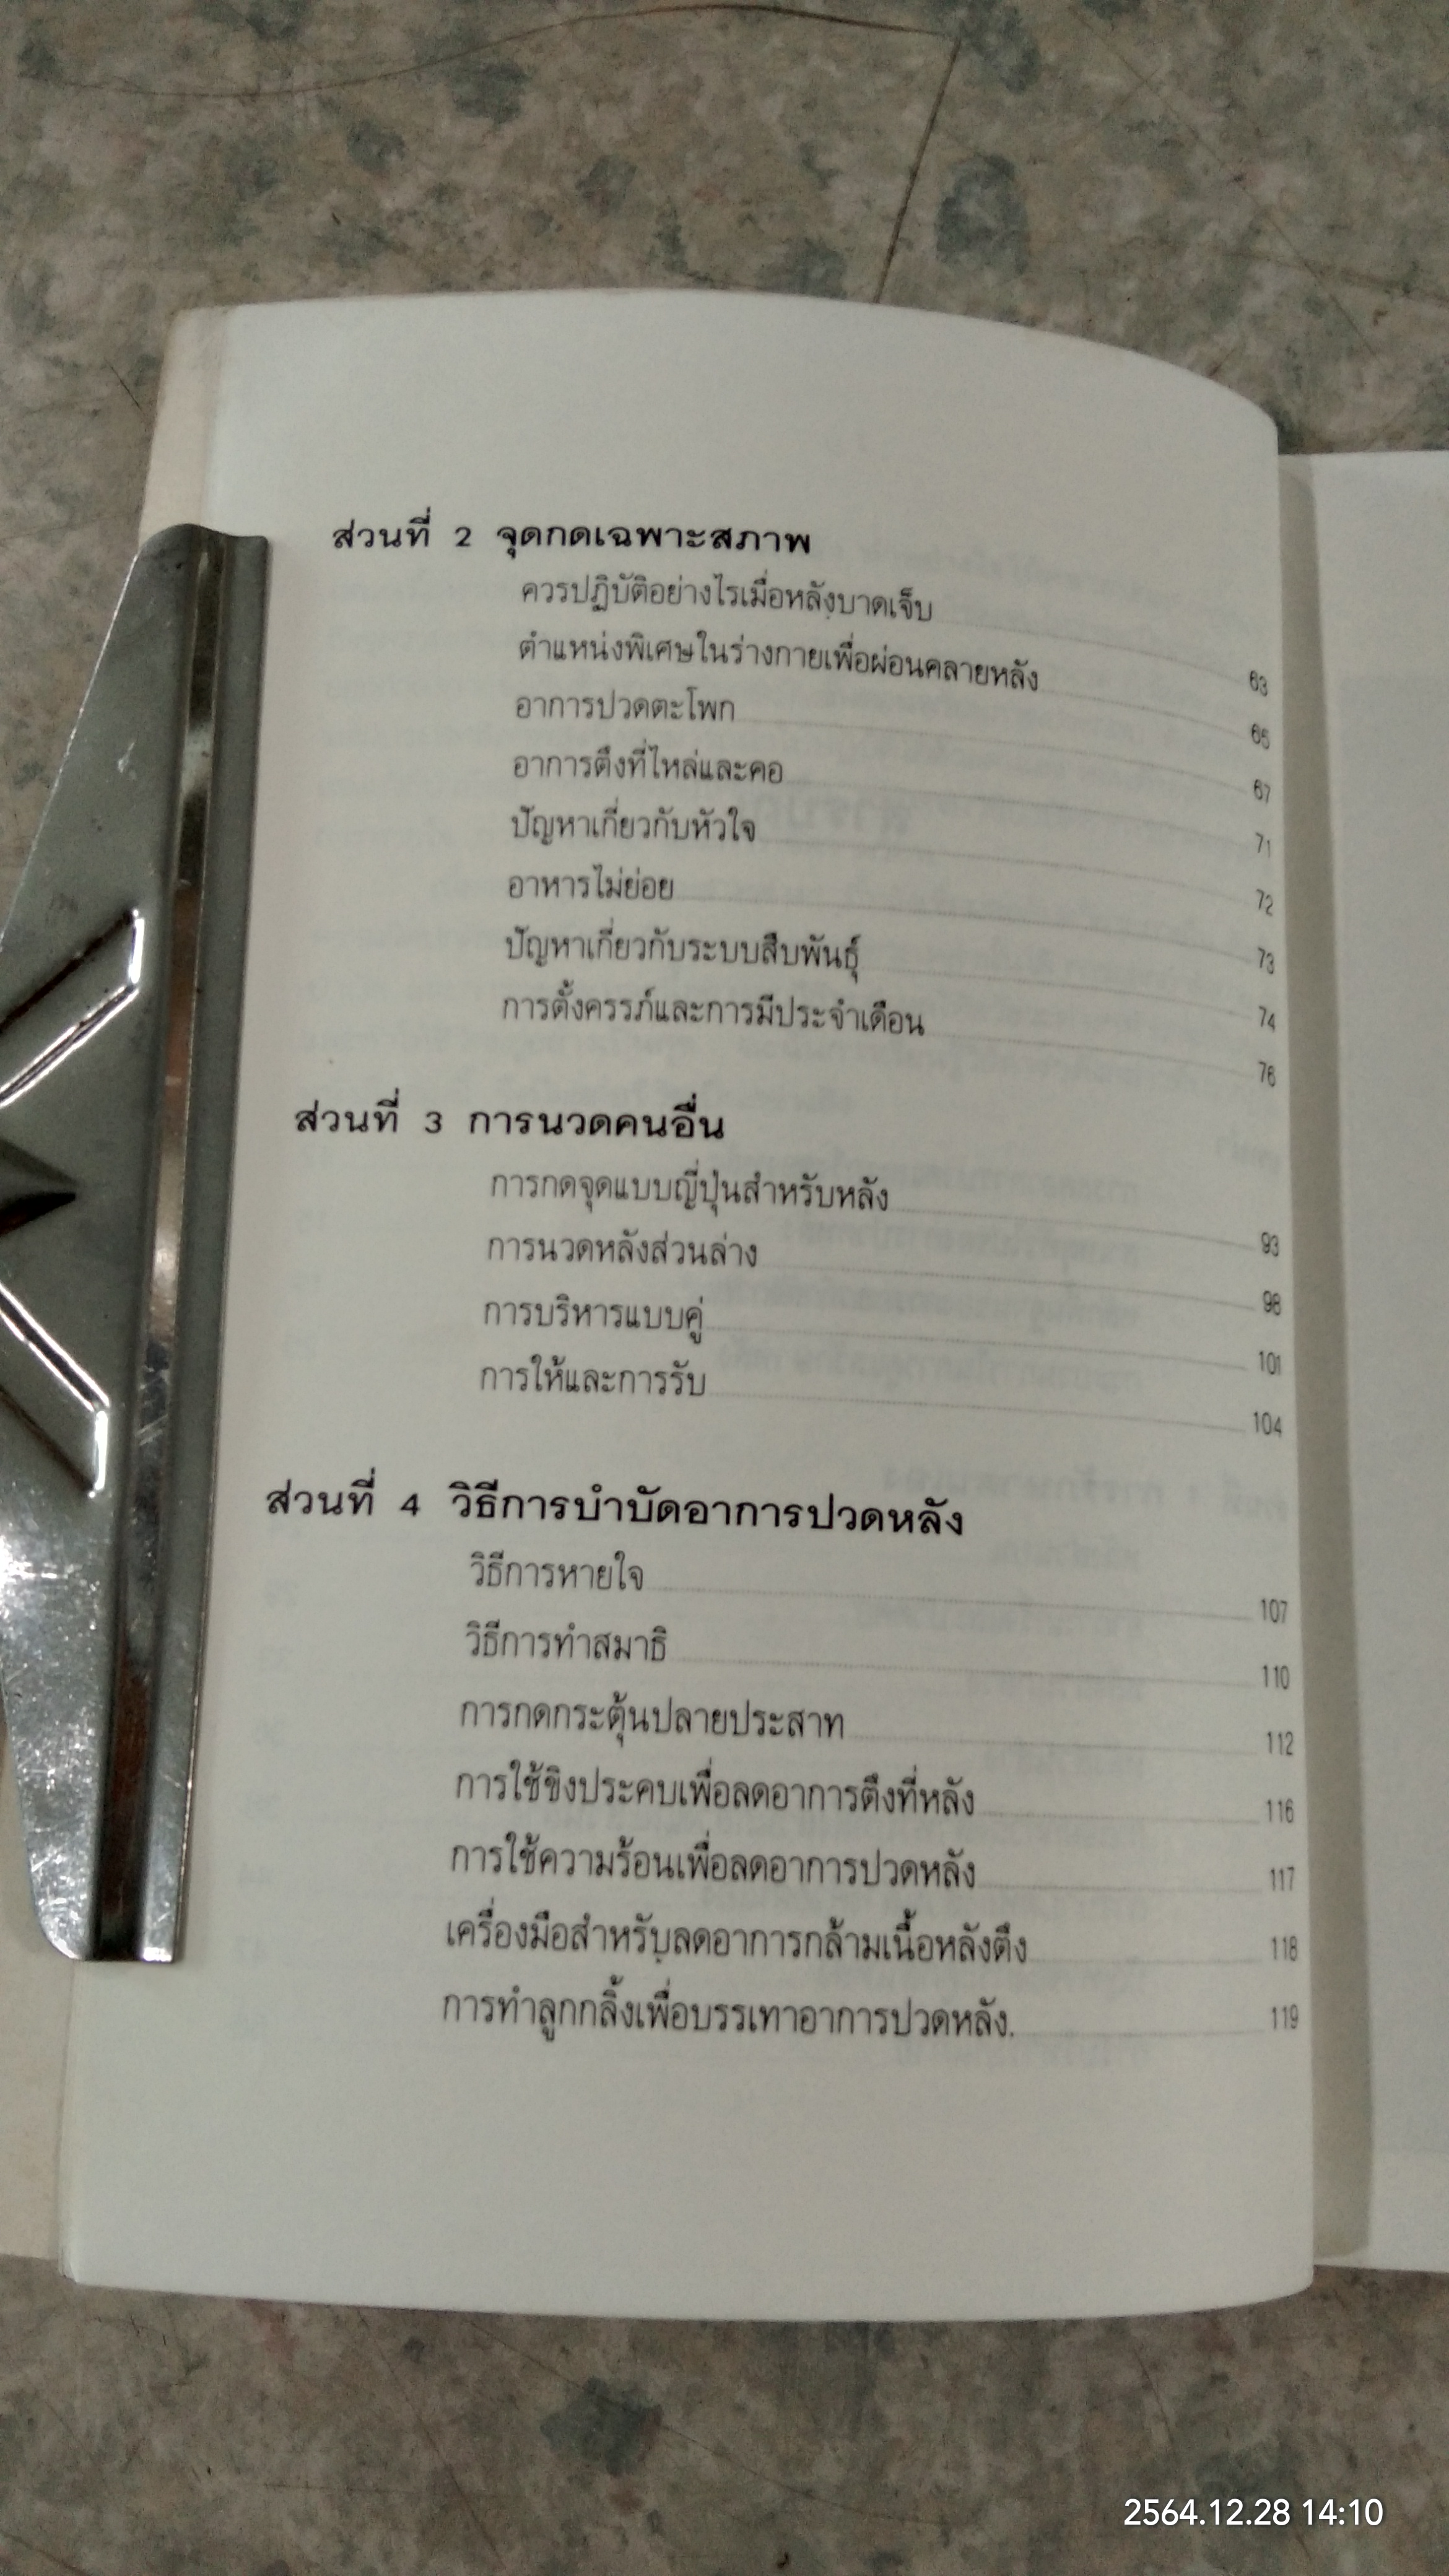 ส่วนที่ 2 จุดกดเฉพาะสภาพ
ควรปฏิบัติอย่างไรเมื่อหลังบาดเจ็บ 63
ตำแหน่งพิเศษในร่างกายเพื่อผ่อนคลายหลัง 65
อาการปวดตะโพก 67
อาการตึงที่ไหล่และคอ 71
ปัญหาเกี่ยวกับหัวใจ 72
อาหารไม่ย่อย 73
ปัญหาเกี่ยวกับระบบสืบพันธุ์ 74
การตั้งครรภ์และการมีประจำเดือน 76
ส่วนที่ 3 การนวดคนอื่น
การกดจุดแบบญี่ปุ่นสำหรับหลัง 93
การนวดหลังส่วนล่าง 98
การบริหารแบบคู่ 101
การให้และการรับ 104
ส่วนที่ 4 วิธีการบำบัดอาการปวดหลัง
วิธีการหายใจ 107
วิธีการทำสมาธิ 110
การกดกระตุ้นปลายประสาท 112
การใช้ขิงประคบเพื่อลดอาการตึงที่หลัง 116
การใช้ความร้อนเพื่อลดอาการปวดหลัง 117
เครื่องมือสำหรับลดอาการกล้ามเนื้อหลังตึง 118
การทำลูกกลิ้งเพื่อบรรเทาอาการปวดหลัง. 119
2564.12.28 14:10